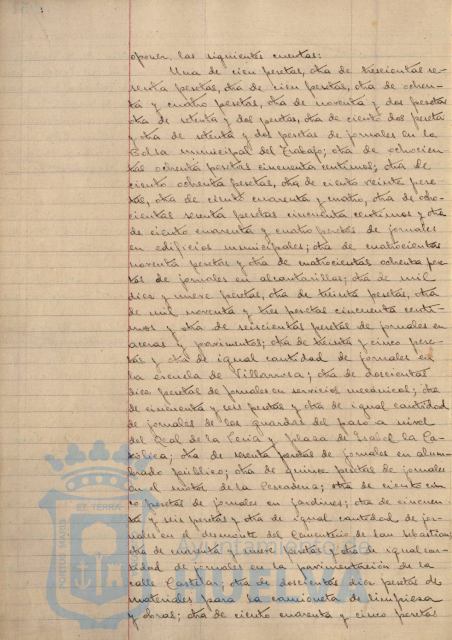 oponer las siguientes cuentas:
Una de cien pesetas, otra de trescientas se-
senta pesetas, otra de cien pesetas, otra de ochen-
ta y cuatro pesetas, otra de noventa y dos pesetas
otra de setenta y dos pesetas, otra de ciento dos pesetas
y otra de setenta y dos pesetas de jornales en la
Bolsa municipal del Trabajo; otra de ochocien-
tas ochenta pesetas cincuenta centimos; otra de
ciento ochenta pesetas, otra de ciento veinte pese-
tas, otra de ciento cuarenta y cuatro, otra de ocho-
cientas sesenta pesetas cincuenta centimos y otra
de ciento cuarenta y cuatro pesetas de jornales
en edificios municipales; otra de cuatrocientas
noventa pesetas y otra de cuatrocientas ochenta pese-
tas de jornales en alcantarillas; otra de mil
diez y nueve pesetas, otra de treinta pesetas, otra
de mil noventa y tres pesetas cincuenta centi-
mos y otra de seiscientas pesetas de jornales en
aceras y pavimentos; otra de treinta y cinco pese-
tas y otra de igual cantidad de jornales en
la escuela de Villarrosa; otra de doscientas
diez pesetas de jornales en servicios mecánicos; otra
de cincuenta y seis pesetas y otra de igual cantidad
de jornales de los guardas del paso a nivel
del Real de la Feria y plaza de Isabel la Ca-
tólica; otra de sesenta pesetas de jornales en alum-
brado público; otra de quince pesetas de jornales
en el motor de la Pescadería; otra de ciento cin-
co pesetas de jornales en jardines; otra de cincuen-
ta y seis pesetas y otra de igual cantidad de jor-
nales en el desmonte del Cementerio de San Sebastian,
otra de cuarenta y nueve pesetas y otra de igual can-
tidad de jornales en la pavimentación de la
calle Castelar; otra de doscientas diez pesetas de
materiales para la camioneta de limpieza
y obras; otra de ciento cuarenta y cinco pesetas
PORTUS MARIS ET TERRÆ
Ayuntamiento de